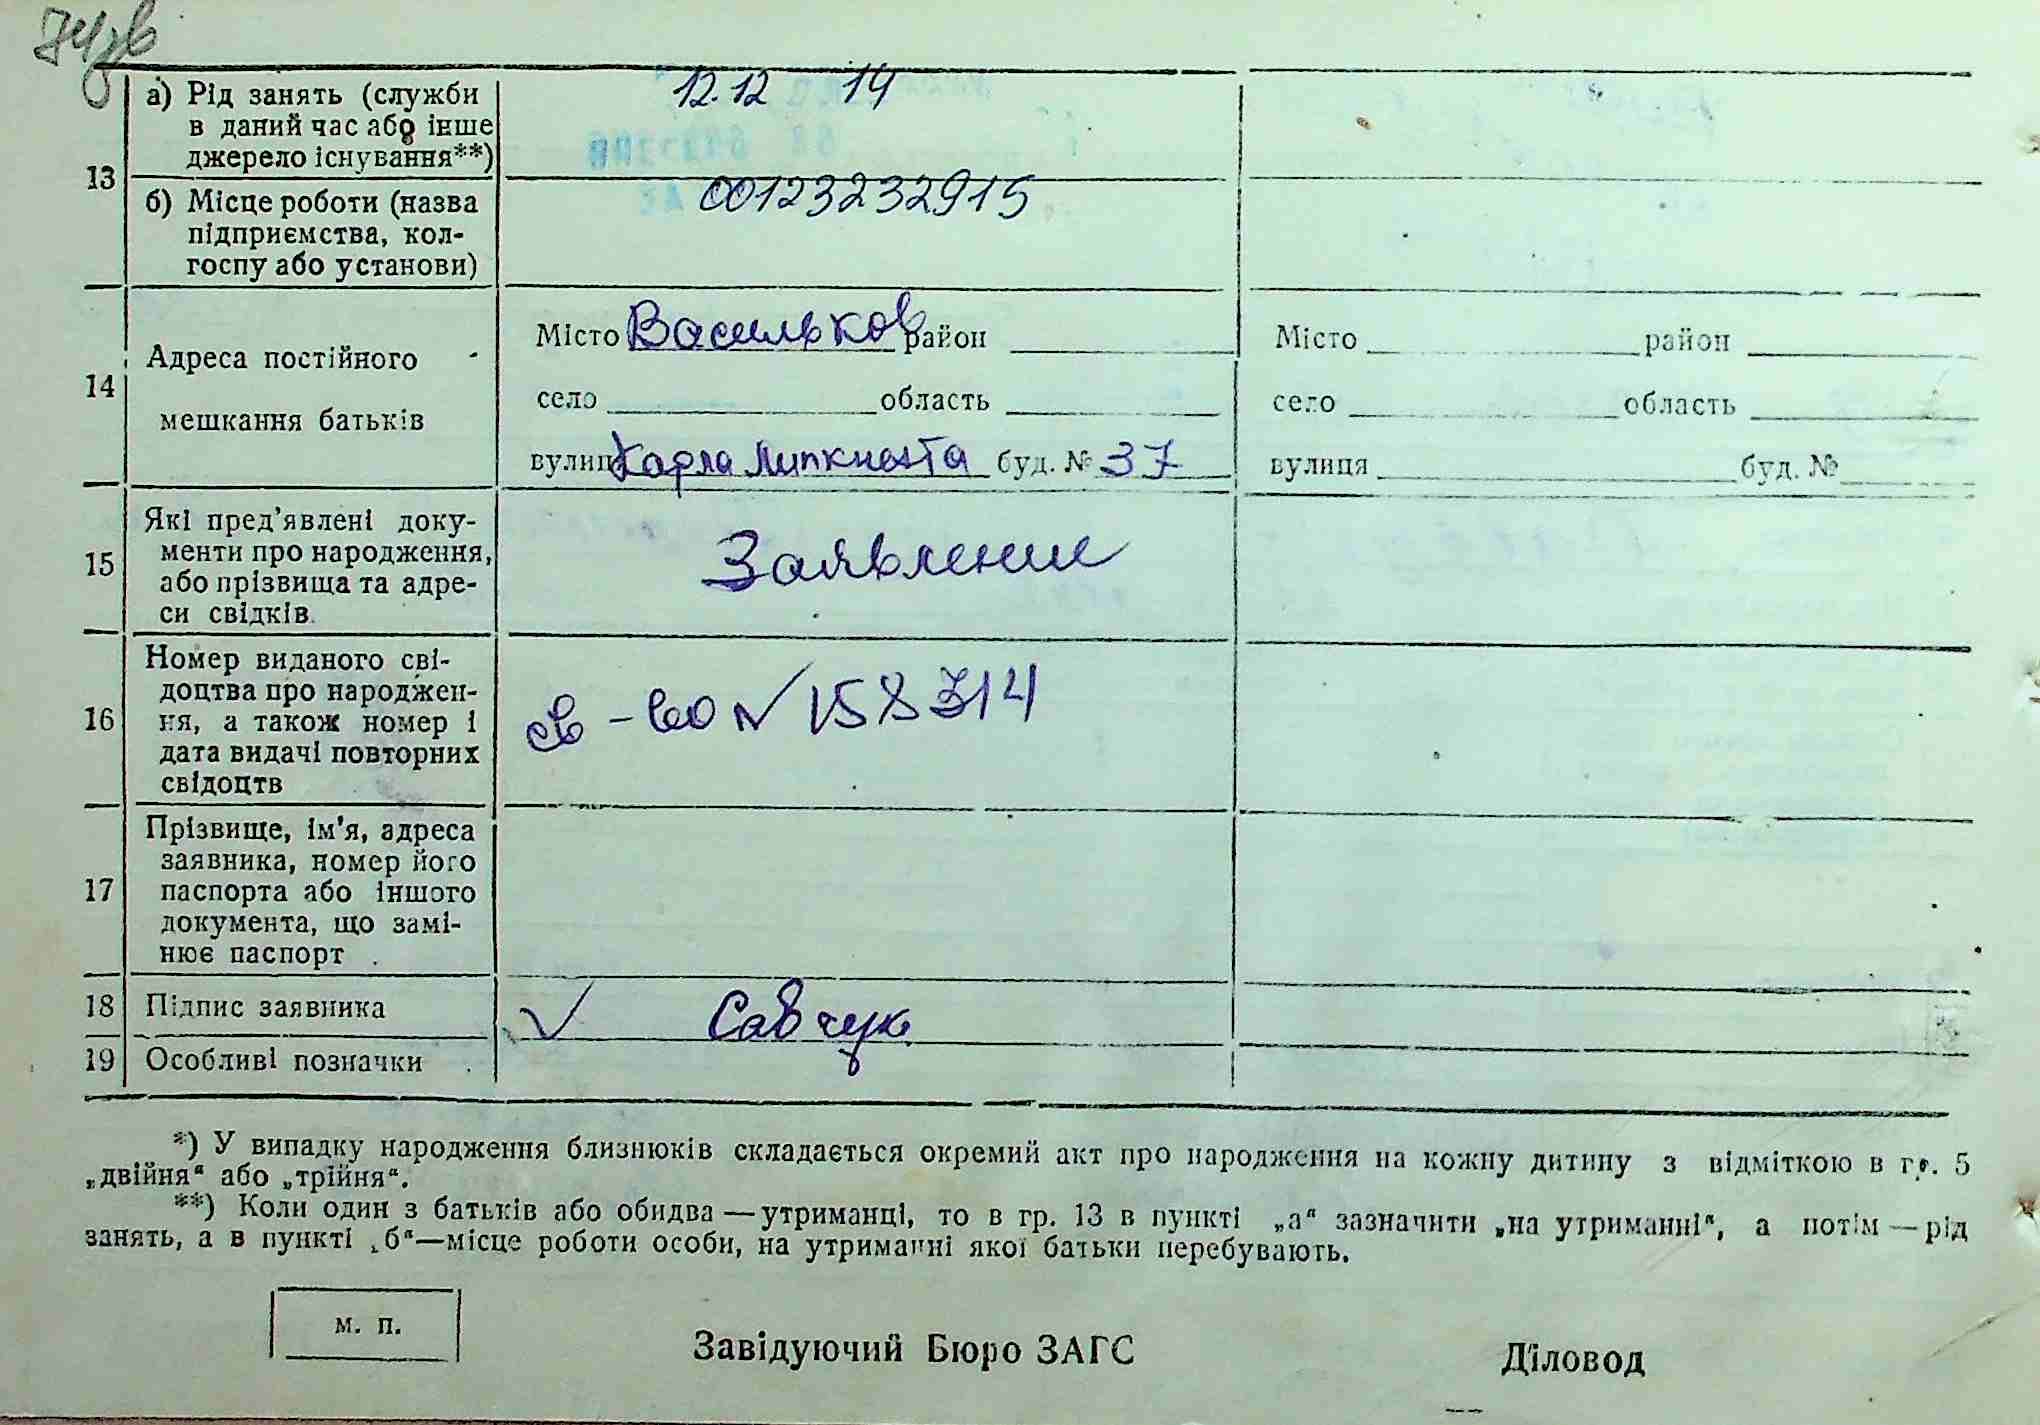 13
а) Рід занять (служби
в даний час або інше
джерело існування**)
12.12 14
б) Місце роботи (назва
підприємства, кол-
госпу або установи)
00123232915
14
Адреса постійного
мешкання батьків
Місто Васильков район
село область
вулиця Карла Липкнехта буд. № 37
Місто район
село область
вулиця буд. №
15
Які пред’явлені доку-
менти про народження,
або прізвища та адре-
си свідків.
Заявление
16
Номер виданого сві-
доцтва про народжен-
ня, а також номер і
дата видачі повторних
свідоцтв
св-во № 158314
17
Прізвище, ім’я, адреса
заявника, номер його
паспорта або іншого
документа, що замі-
нює паспорт.
18 Підпис заявника
✓ Савчук
19 Особливі позначки.
*) У випадку народження близнюків складається окремий акт про народження на кожну дитину з відміткою в гр. 5
„двійня“ або „трійня“.
**) Коли один з батьків або обидва—утриманці, то в гр. 13 в пункті „а“ зазначити „на утриманні“, а потім—рід
занять, а в пункті „б“—місце роботи особи, на утриманні якої батьки перебувають.
м. п.
Завідуючий Бюро ЗАГС
Діловод